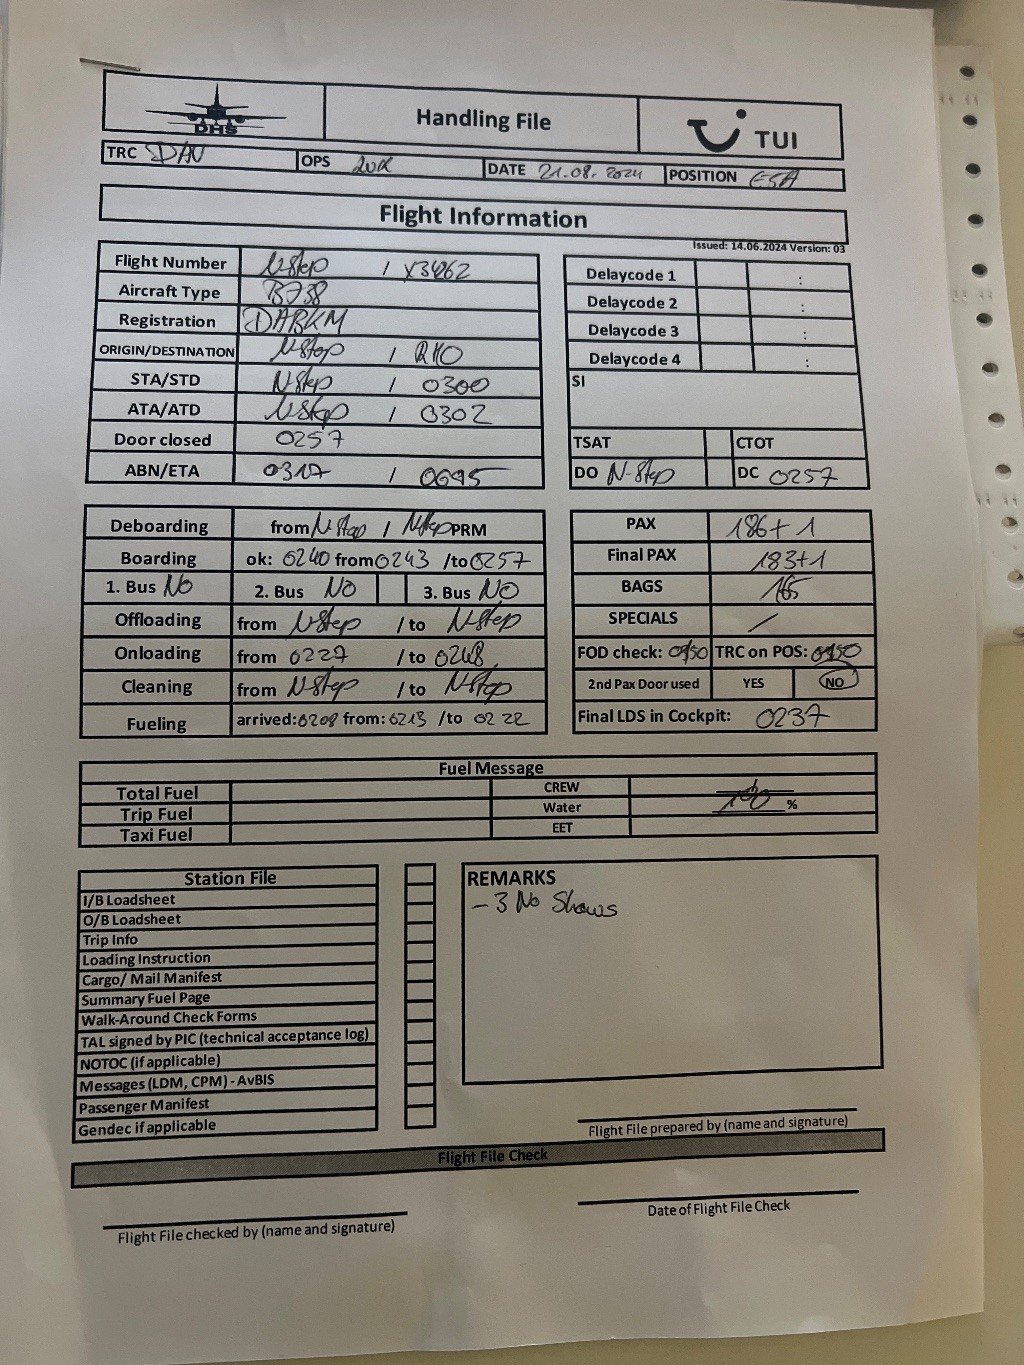 DHS Handling File TUI
TRC DAV OPS DATE 21.08.2024 POSITION E5A
Flight Information
Issued: 14.06.2024 Version: 03
Flight Number N-Stop / X34262
Aircraft Type B738
Registration DABKM
ORIGIN/DESTINATION N-Stop / RHO
STA/STD N-Stop / 0300
ATA/ATD N-Stop / 0302
Door closed 0257
ABN/ETA 0317 /
Delaycode 1 :
Delaycode 2 :
Delaycode 3 :
Delaycode 4 :
SI
TSAT CTOT
DO N-Stop DC 0257
Deboarding from N-Stop / N-Stop PRM
Boarding ok: 0240 from 0243 /to 0257
1. Bus NO 2. Bus NO 3. Bus NO
Offloading from N-Stop / to N-Stop
Onloading from 0227 / to 0248
Cleaning from N-Stop / to N-Stop
Fueling arrived: 0208 from: 0213 /to 0222
PAX 186+1
Final PAX 183+1
BAGS 165
SPECIALS /
FOD check: TRC on POS:
2nd Pax Door used YES NO
Final LDS in Cockpit: 0237
Fuel Message
Total Fuel CREW
Trip Fuel Water 100 %
Taxi Fuel EET
Station File
I/B Loadsheet
O/B Loadsheet
Trip Info
Loading Instruction
Cargo/ Mail Manifest
Summary Fuel Page
Walk-Around Check Forms
TAL signed by PIC (technical acceptance log)
NOTOC (if applicable)
Messages (LDM, CPM) - AvBIS
Passenger Manifest
Gendec if applicable
REMARKS
- 3 No Shows
Flight File prepared by (name and signature)
Flight File Check
Flight File checked by (name and signature)
Date of Flight File Check